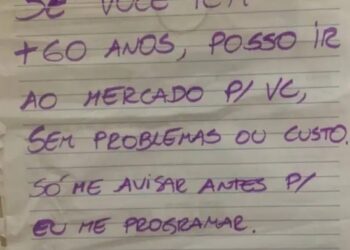 SE VOCÊ TEM
+60 ANOS, POSSO IR
AO MERCADO P/ VC,
SEM PROBLEMAS OU CUSTO.
SÓ ME AVISAR ANTES P/
EU ME PROGRAMAR.